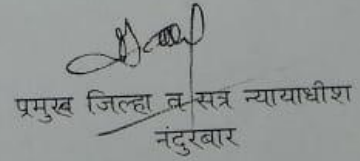 प्रमुख जिल्हा व सत्र न्यायाधीश
नंदुरबार